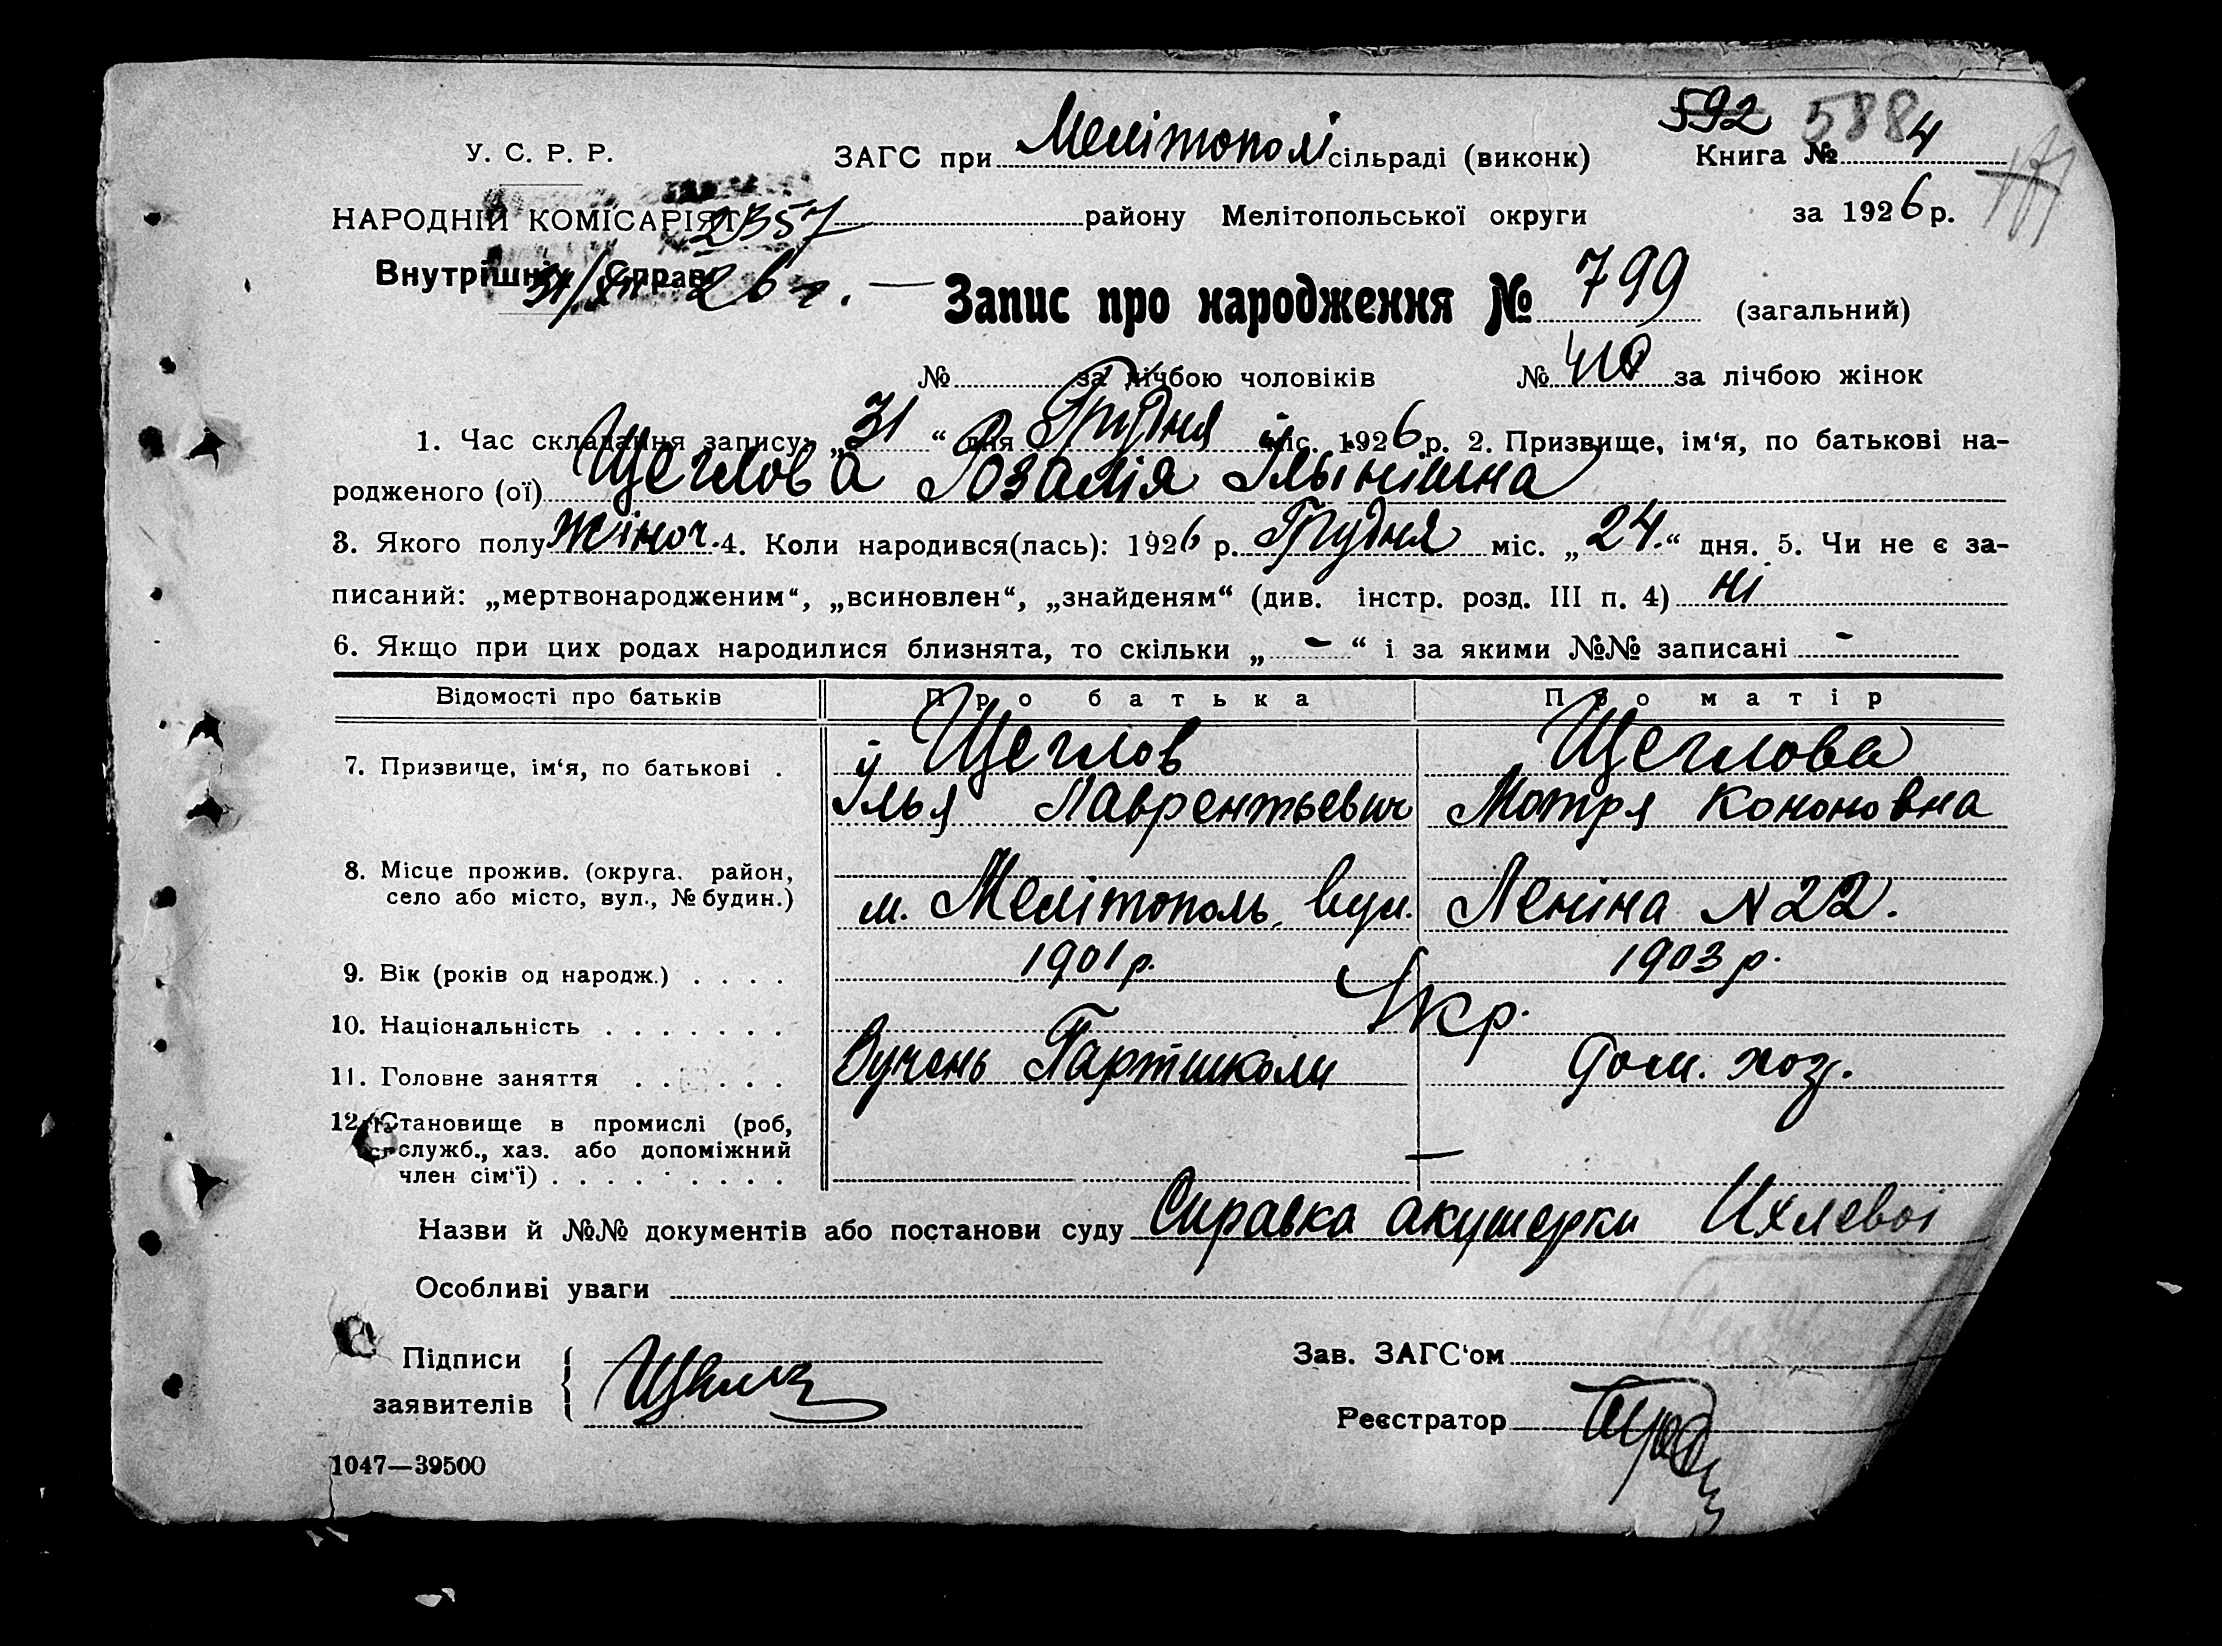 592 588
У. С. Р. Р. ЗАГС при Мелітополі сільраді (виконк) Книга № 4
НАРОДНІЙ КОМІСАРІЯТ 2357 району Мелітопольської округи за 1926 р.
Внутрішніх Справ 31/XII 26 г. Запис про народження № 799 (загальний)
№ за лічбою чоловіків № 418 за лічбою жінок
1. Час складання запису: „31“ дня Грудня міс. 1926 р. 2. Призвище, ім‘я, по батькові на-
родженого (ої) Щеглова Розалія Ільінішна
3. Якого полу жіноч. 4. Коли народився(лась): 1926 р. Грудня міс. „24.“ дня. 5. Чи не є за-
писаний: „мертвонародженим“, „всиновлен“, „знайденям“ (див. інстр. розд. III п. 4) ні
6. Якщо при цих родах народилися близнята, то скільки „ - “ і за якими №№ записані -
Відомості про батьків Про батька Про матір
7. Призвище, ім‘я, по батькові . Щеглов Щеглова
Ілья Лаврентьевич Мотря Кононовна
8. Місце прожив. (округа, район,
село або місто, вул., № будин.) м. Мелітополь, вул. Леніна N 22.
9. Вік (років од народж.) . . . . 1901 р. 1903 р.
10. Національність . . . . . . . Укр.
11. Головне заняття . . . . . . Вучень Партшколи Дом. хоз.
12. Становище в промислі (роб,
служб., хаз. або допоміжний
член сім‘ї) . . . . . . . . . —
Назви й №№ документів або постанови суду Справка акушерки
Особливі уваги
Підписи Зав. ЗАГС‘ом
заявителів Реєстратор
1047—39500